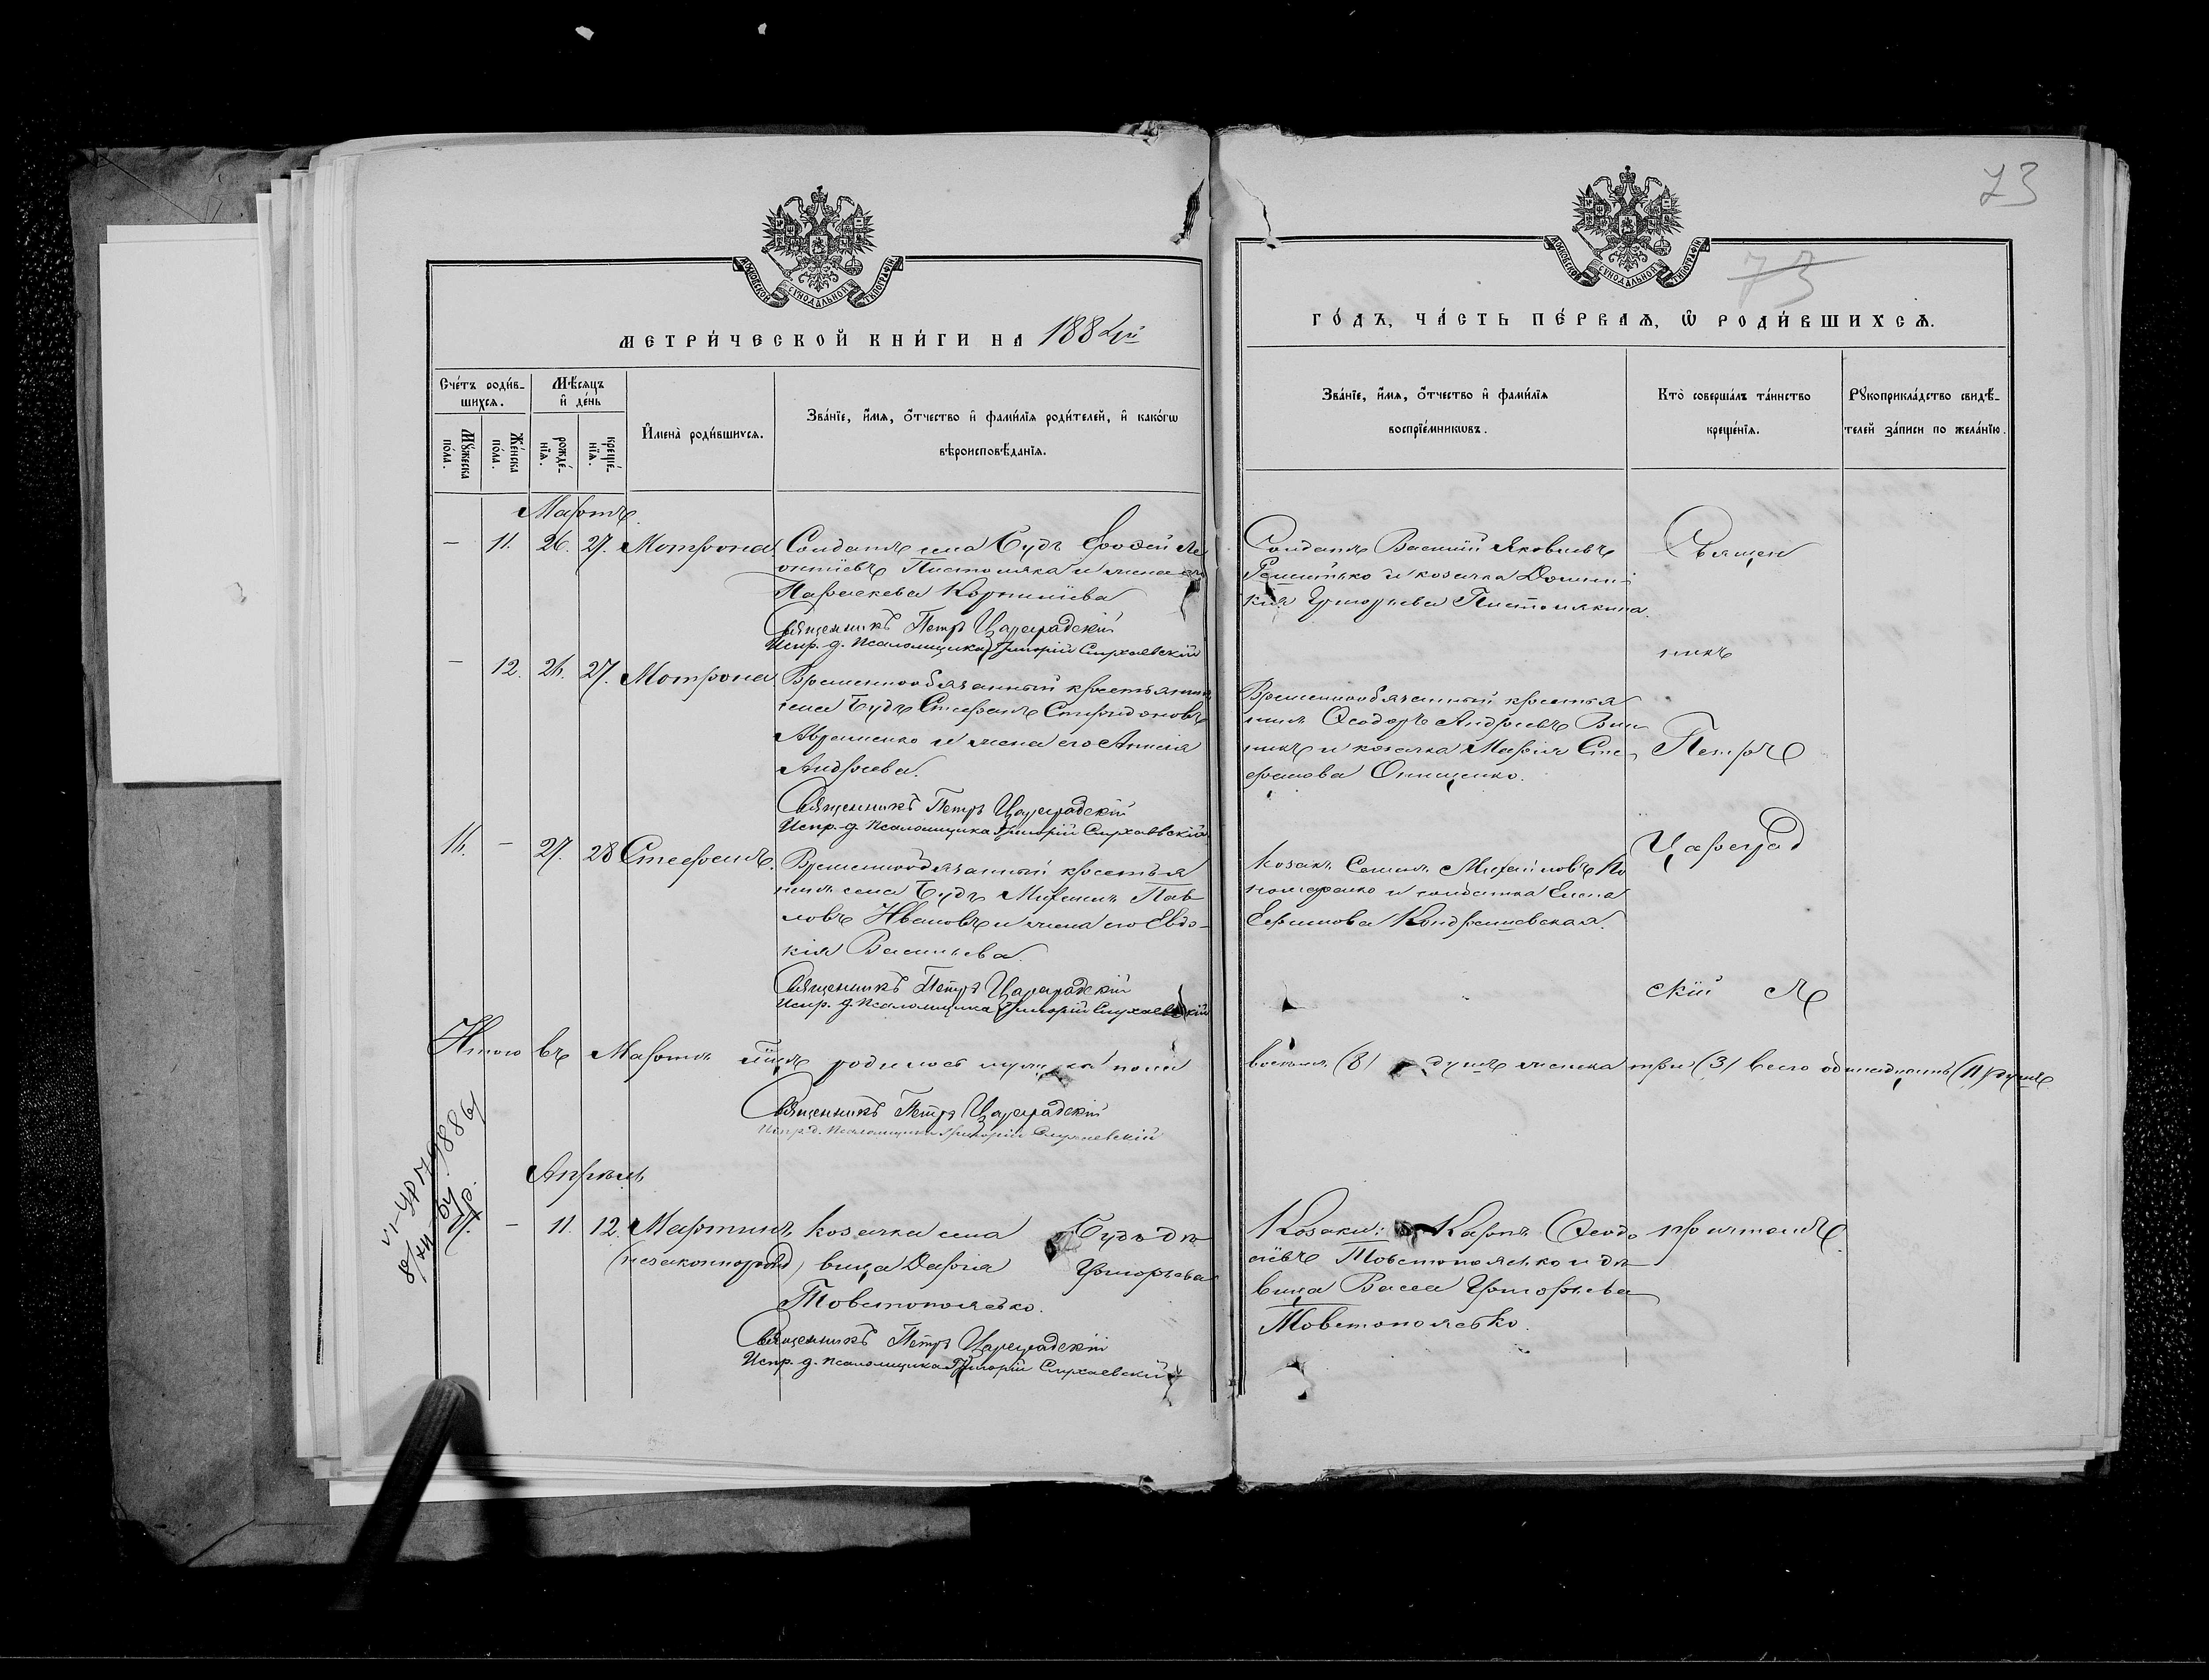 73
73
МОСКОВСКОЙ СѴНОДАЛЬНОЙ ТИПОГРАФІИ
МЕТРИ́ЧЕСКОЙ КНИ́ГИ НА 1884й
Сче́тъ роди́вшихсѧ.
Мѣ́сѧцъ и҆ де́нь
Мꙋ́жеска по́ла.
Же́нска по́ла.
рожде́нїѧ.
креще́нїѧ.
И҆мена̀ роди́вшихсѧ.
Зва́нїе, и҆́мѧ, ѻ҆́тчество и҆ фами́лїѧ роди́телей, и҆ како́гѡ
вѣроисповѣ́данїѧ.
Мартъ
— 11. 26. 27. Мотрона. Солдатъ села Будъ Ерофей Ле
онтіевъ Пистоляка и жена его
Параскева Корниліева
Священникъ Петръ Цареградскій
Испр. д. Псаломщика Григорій Слухаевскій
— 12. 26. 27. Мотрона. Временнообязанный крестьянинъ
села Будъ Стефанъ Спиридоновъ
Авраменко и жена его Анисія
Андреева.
Священникъ Петръ Цареградскій
Испр. д. Псаломщика Григорій Слухаевскій
— 27. 28 Стефанъ. Временнообязанный крестья
нинъ села Будъ Михаилъ Пав
ловъ Ивановъ и жена его Евдо-
кія Васильева.
Священникъ Петръ Цареградскій
Испр. д. Псаломщика Григорій Слухаевскій
Итого въ Мартѣ родилось мужеска пола
Священникъ Петръ Цареградскій
Испр. д. Псаломщика Григорій Слухаевскій
Апрѣль
— 11. 12. Мартинъ Козачка села Будъ дѣ
(незаконнорожд) вица Дарія Григорьева
Товстопятько.
Священникъ Петръ Цареградскій
Испр. д. Псаломщика Григорій Слухаевскій
МОСКОВСКОЙ СѴНОДАЛЬНОЙ ТИПОГРАФІИ
ГО́ДЪ, ЧА́СТЬ ПЕ́РВАѦ, Ѡ҆ РОДИ́ВШИХСѦ.
Зва́нїе, и҆́мѧ, ѻ҆́тчество и҆ фами́лїѧ
воспрїе́мникѡвъ.
Кто̀ соверша́лъ та́инство
креще́нїѧ.
Рꙋкоприкла́дство свидѣ́-
телей за́писи по жела́нїю.
Солдатъ Василій Яковлевъ
и козачка Домни-
кія Григорьева Пистолякина.
Временнообязанный крестья
нинъ Ѳеодоръ Андреевъ Вин
никъ и козачка Марія Сте
фанова Онищенко.
Козакъ Семенъ Михайловъ По
номаренко и солдатка Елена
Ефимова Кондрашевская.
Священ
никъ
Петръ
Цареград
скій съ
восемь (8) душъ женска три (3) всего одинадцать (11) душъ
Козаки: Карпъ Ѳеодо
сіевъ Товстопятько и дѣ
вица Васса Григорьева
Товстопятько.
причтомъ